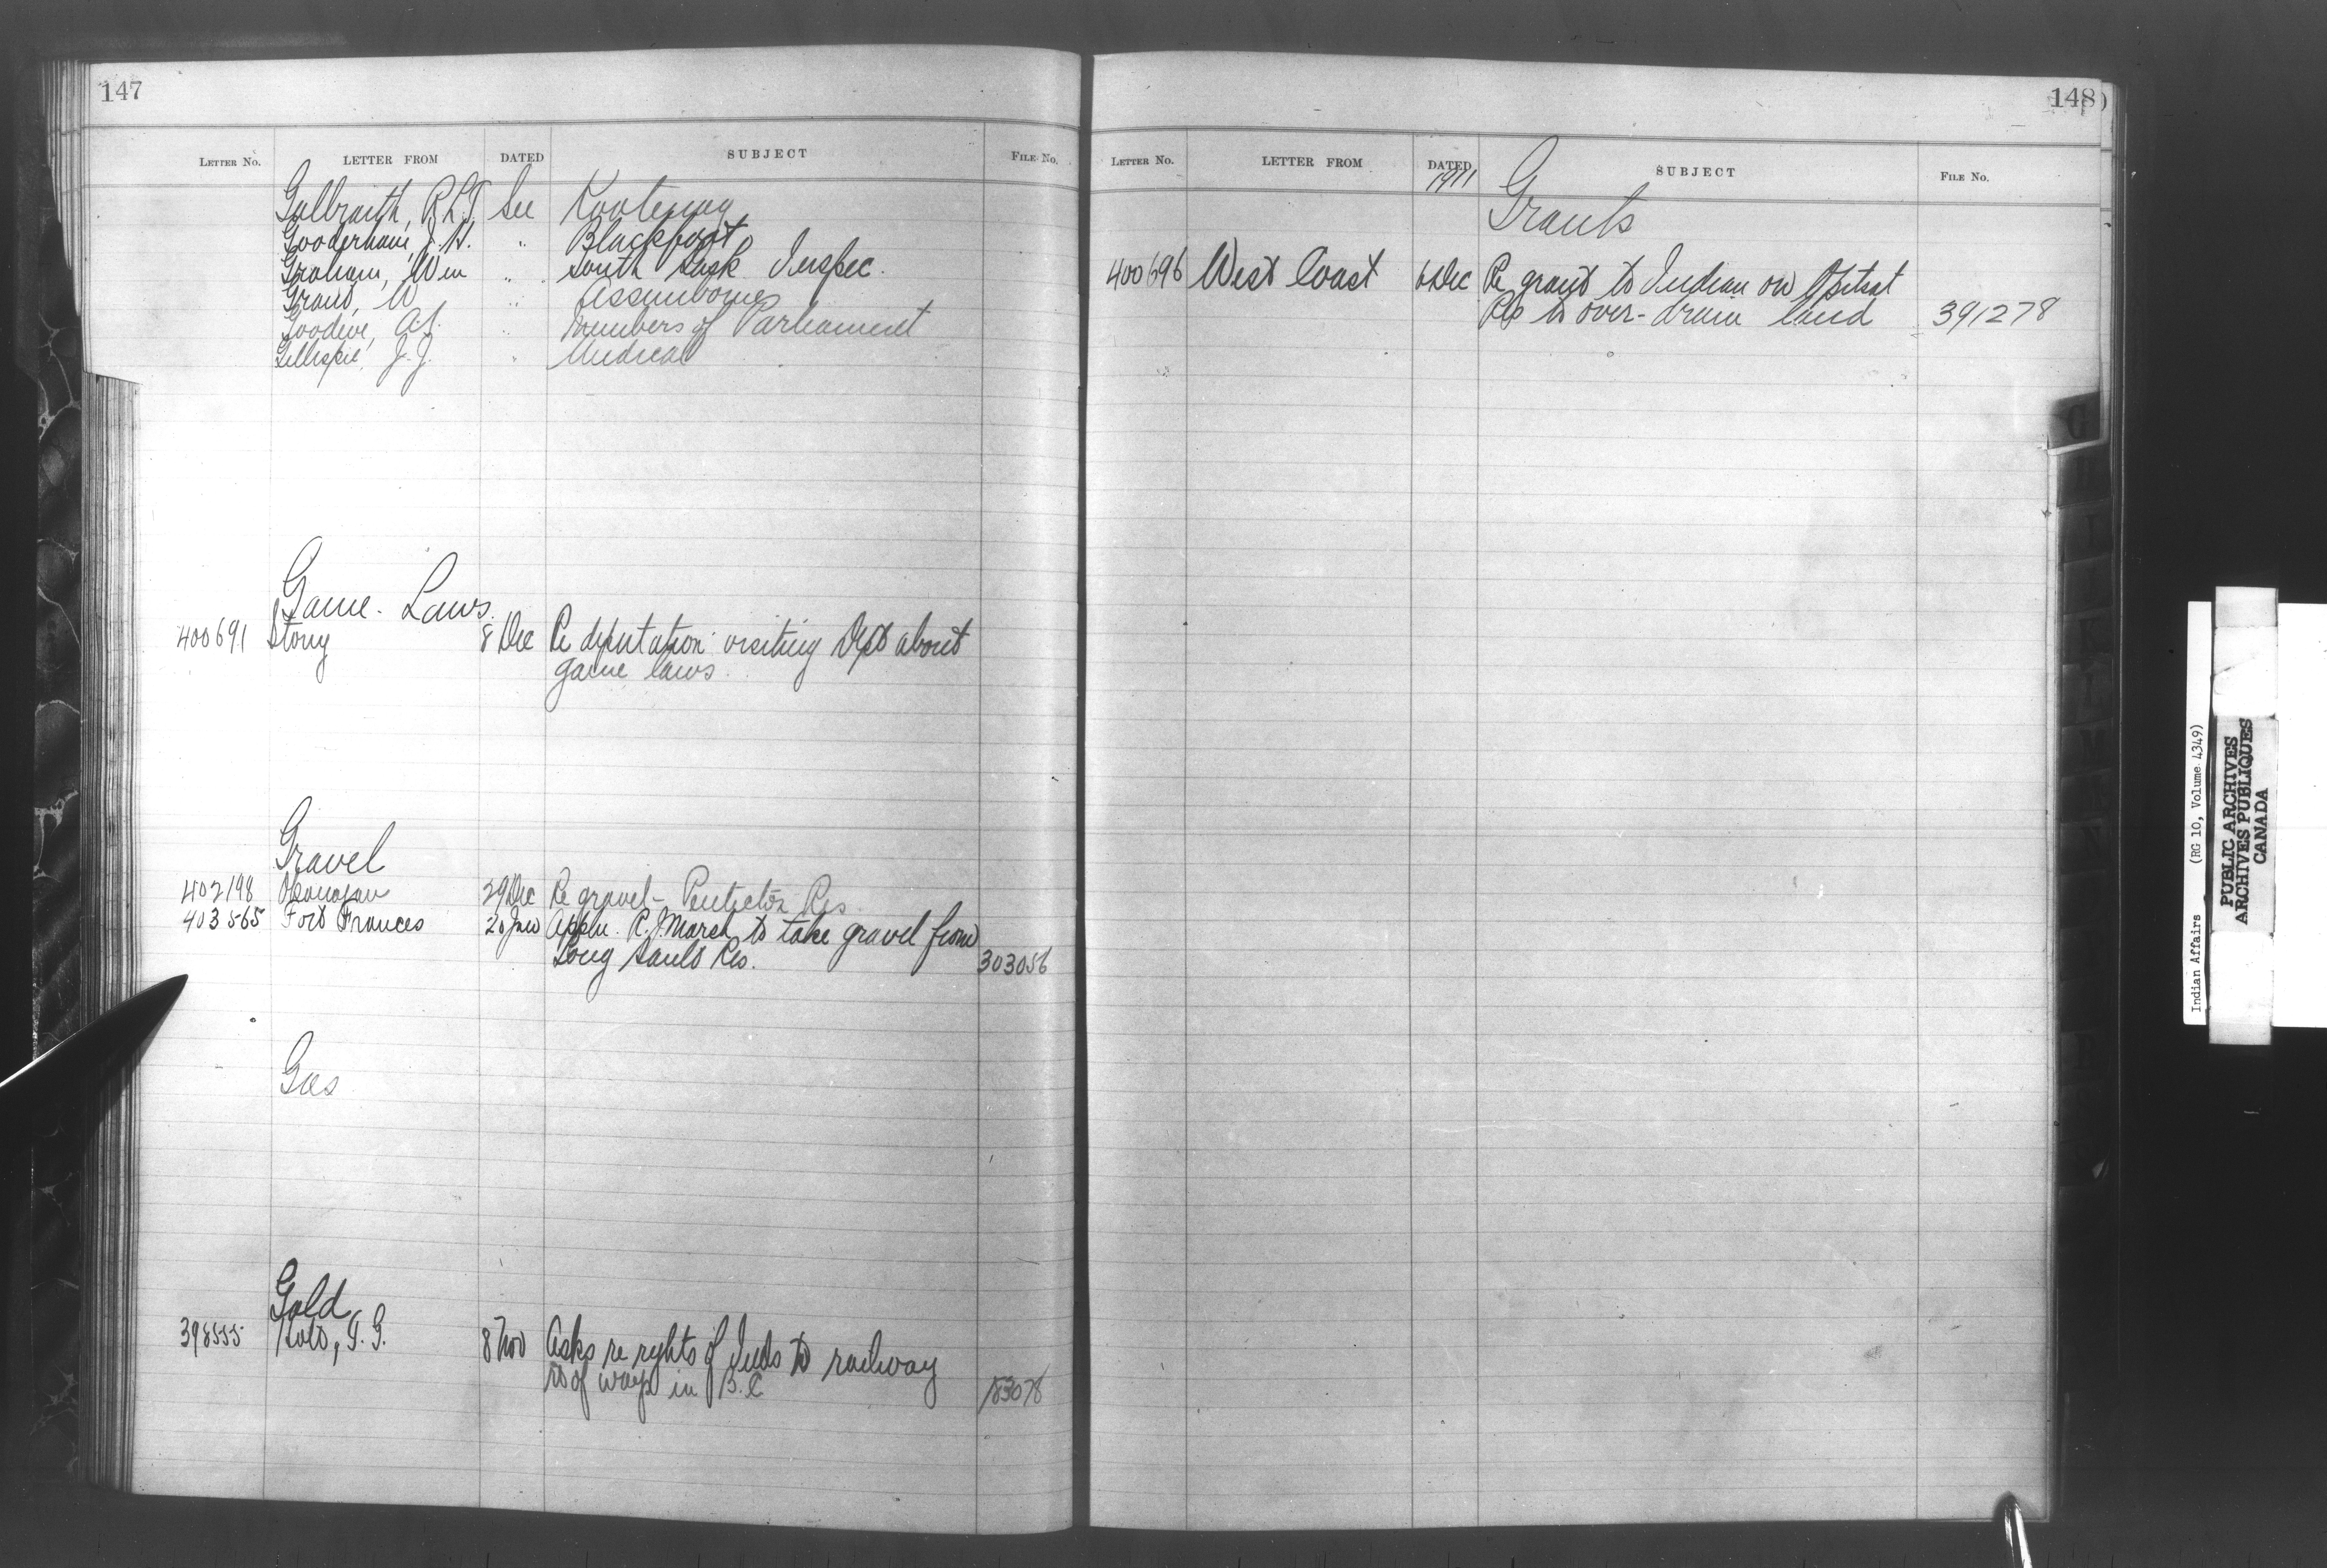 147
LETTER NO. LETTER FROM DATED SUBJECT FILE NO.
Galbraith, R.L.T. See Kootenay
Gooderham, J.H. " Blackfoot
Graham, Wm " South Sask Inspec.
Grant, W " Assiniboine
Goodeve, A.S. " Members of Parliament
Gillespie, J.J. " Medical
Game Laws.
400691 Stony 8 Dec Re deputation visiting Dept about
game laws.
Gravel
402198 Okanagan 29 Dec Re gravel - Penticton Res
403565 Fort Frances 20 Jan Appln. R.J. Marsh to take gravel from
Long Sault Res. 303056
Gas
Gold
398555 8 Nov Asks re rights of Inds to railway
rt of ways in B.C 183078
148
LETTER NO. LETTER FROM DATED SUBJECT FILE NO.
1911
Grants
400696 West Coast 6 Dec Re grant to Indian on Opitsat
Res to over-drain land 391278
G
H
I
J
K
L
M
N
Indian Affairs (RG 10, Volume 4349)
PUBLIC ARCHIVES
ARCHIVES PUBLIQUES
CANADA